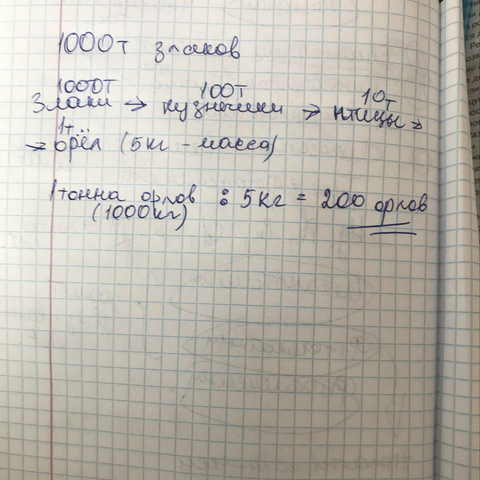 1000т злаков
1000т 100т 10т
Злаки → кузнечики → птицы →
1т
→ орёл (5кг - масса)
1 тонна орлов : 5кг = 200 орлов
(1000кг)